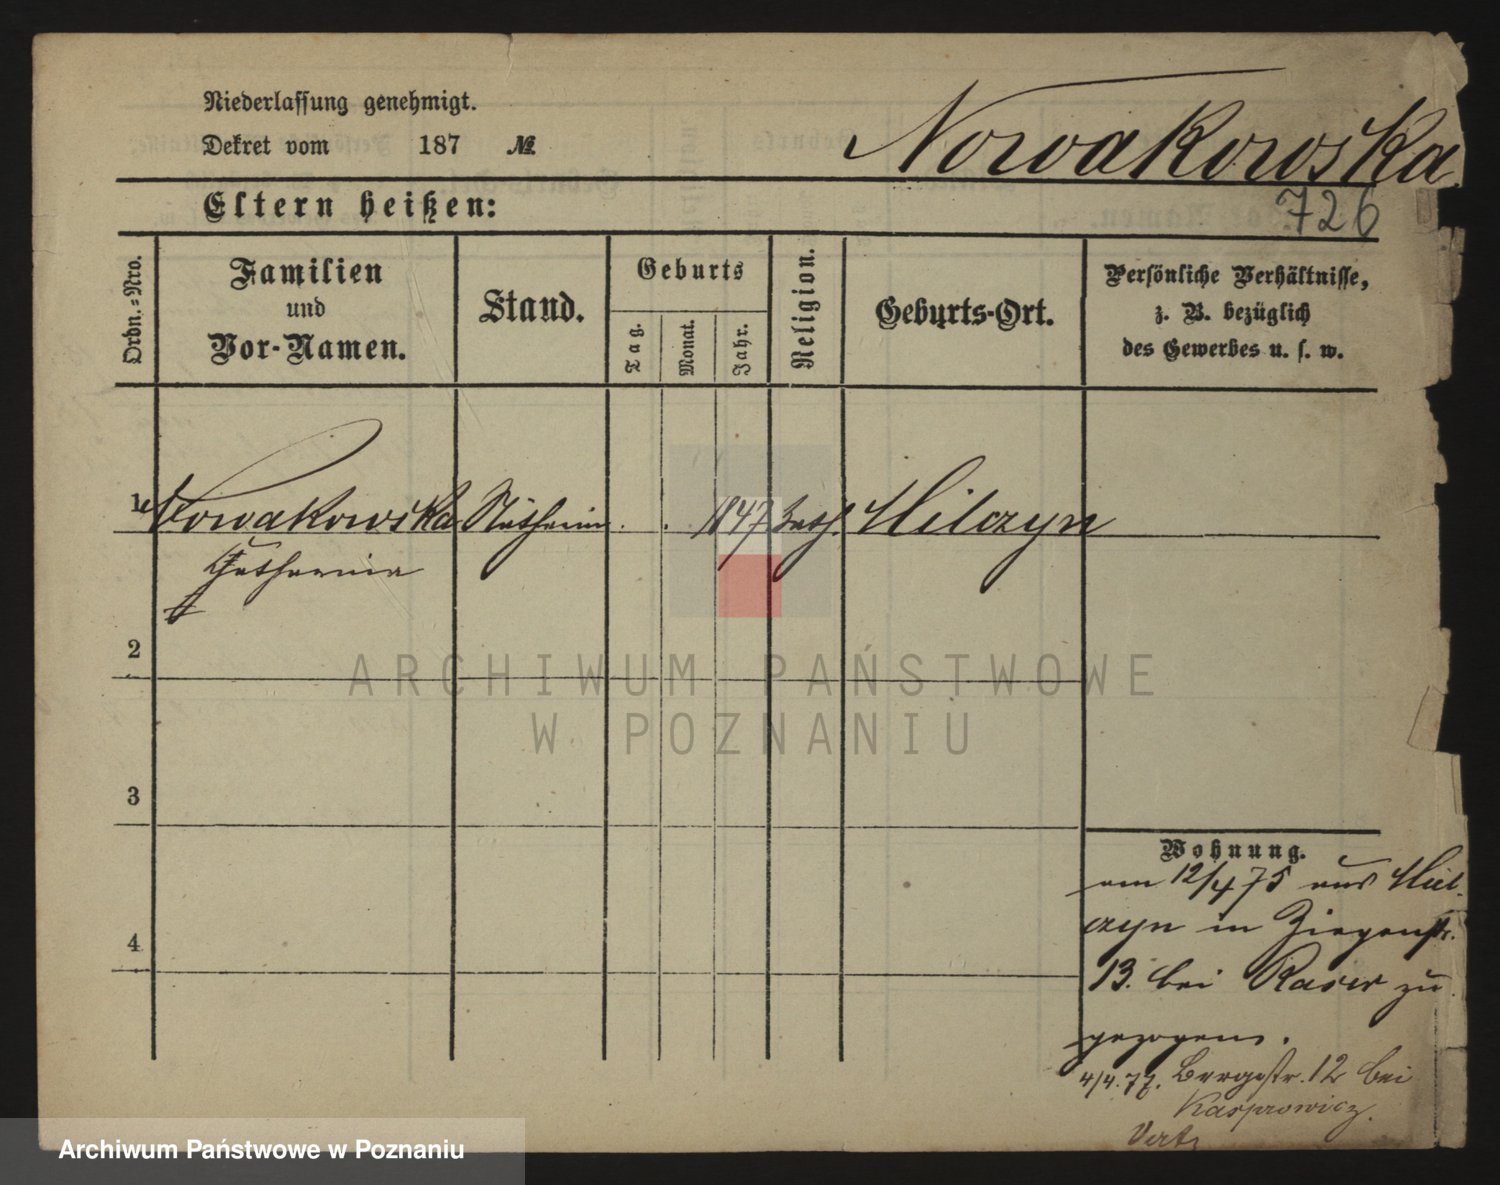 Niederlassung genehmigt.
Dekret vom 187 №
Nowakowska
726
Eltern heißen:
Ordn.-Nro.
Familien
und
Vor-Namen.
Stand.
Geburts
Tag.
Monat.
Jahr.
Religion.
Geburts-Ort.
Persönliche Verhältnisse,
z. B. bezüglich
des Gewerbes u. s. w.
1 Nowakowska Näthrin . . 1847 kath. Milczyn
Catharina
2
3
4
Wohnung.
am 12/4 75 aus Mil-
czyn in Ziegenstr.
13. bei Raser zu
gezogen.
4/4. 77. Bergstr. 12 bei
Kasprowicz.
ARCHIWUM PAŃSTWOWE
W POZNANIU
Archiwum Państwowe w Poznaniu